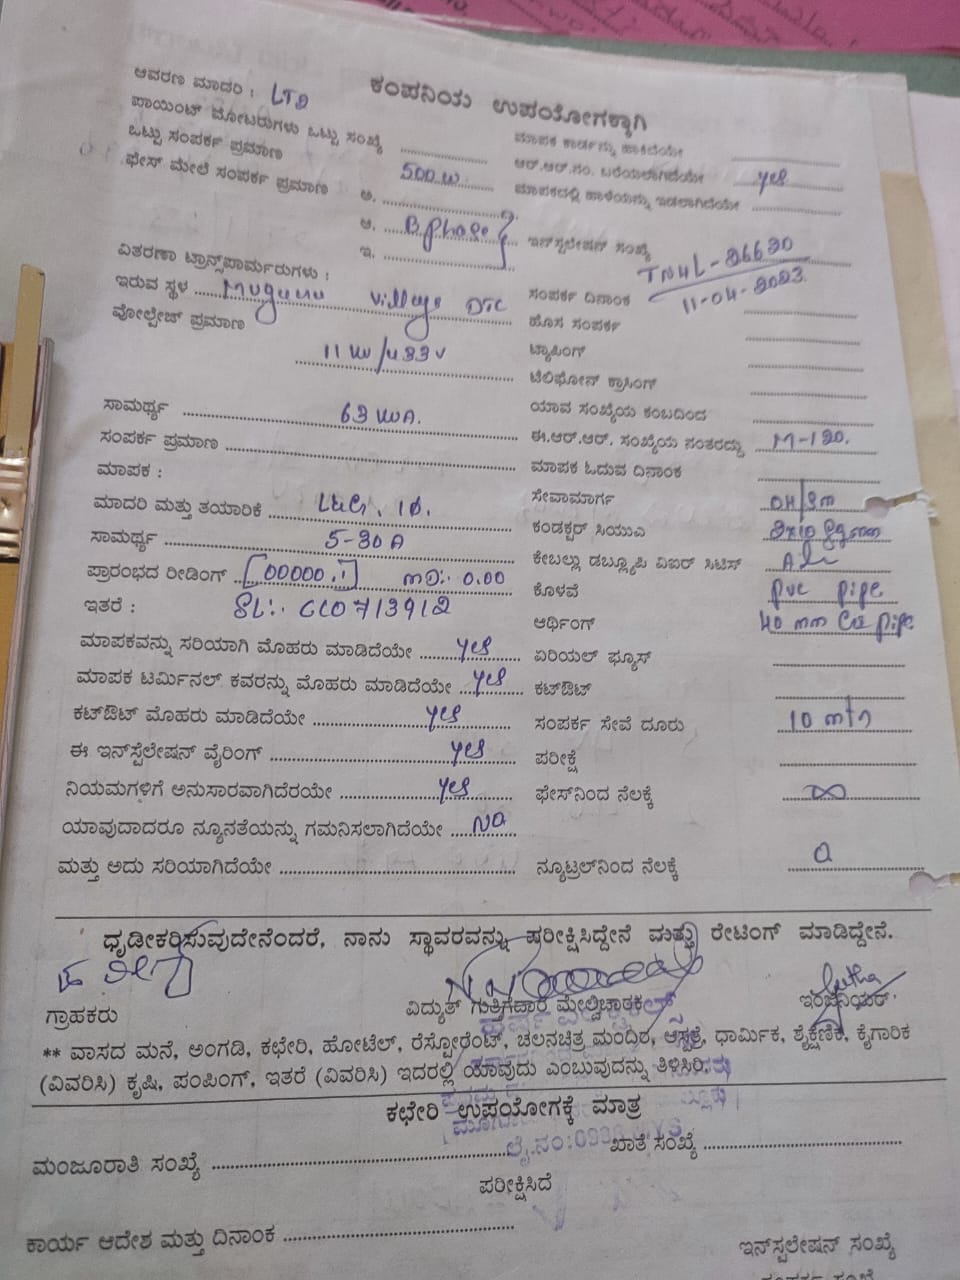 ಕಂಪನಿಯ ಉಪಯೋಗಕ್ಕಾಗಿ
ಆವರಣ ಮಾದರಿ : LTD
ಪಾಯಿಂಟ್ ಮೋಟರುಗಳು ಒಟ್ಟು ಸಂಖ್ಯೆ
ಒಟ್ಟು ಸಂಪರ್ಕ ಪ್ರಮಾಣ 500 W
ಫೇಸ್ ಮೇಲೆ ಸಂಪರ್ಕ ಪ್ರಮಾಣ ಅ.
ಆ. B phase
ಇ.
ವಿತರಣಾ ಟ್ರಾನ್ಸ್‌ಫಾರ್ಮರುಗಳು :
ಇರುವ ಸ್ಥಳ Muguru village DTC
ವೋಲ್ಟೇಜ್ ಪ್ರಮಾಣ
11 KV/433V
ಸಾಮರ್ಥ್ಯ 63 KVA.
ಸಂಪರ್ಕ ಪ್ರಮಾಣ
ಮಾಪಕ :
ಮಾದರಿ ಮತ್ತು ತಯಾರಿಕೆ L&G, 1Ø.
ಸಾಮರ್ಥ್ಯ 5-30A
ಪ್ರಾರಂಭದ ರೀಡಿಂಗ್ 00000.1 MD:- 0.00
ಇತರೆ : SL:- CC0713912
ಮಾಪಕವನ್ನು ಸರಿಯಾಗಿ ಮೊಹರು ಮಾಡಿದೆಯೇ yes
ಮಾಪಕ ಟರ್ಮಿನಲ್ ಕವರನ್ನು ಮೊಹರು ಮಾಡಿದೆಯೇ yes
ಕಟ್‌ಔಟ್ ಮೊಹರು ಮಾಡಿದೆಯೇ yes
ಈ ಇನ್‌ಸ್ಟೆಲೇಷನ್ ವೈರಿಂಗ್ yes
ನಿಯಮಗಳಿಗೆ ಅನುಸಾರವಾಗಿದೆರಯೇ yes
ಯಾವುದಾದರೂ ನ್ಯೂನತೆಯನ್ನು ಗಮನಿಸಲಾಗಿದೆಯೇ NO
ಮತ್ತು ಅದು ಸರಿಯಾಗಿದೆಯೇ
ಮಾಪಕ ಕಾರ್ಡನ್ನು ಹಾಕಿದೆಯೇ
ಆರ್.ಆರ್.ನಂ. ಬರೆಯಲಾಗಿದೆಯೇ yes
ಮಾಪಕದಲ್ಲಿ ಹಾಳೆಯನ್ನು ಇಡಲಾಗಿದೆಯೇ
ಇನ್‌ಸ್ಟಲೇಷನ್ ಸಂಖ್ಯೆ TNHL-26630
ಸಂಪರ್ಕ ದಿನಾಂಕ 11-04-2023
ಹೊಸ ಸಂಪರ್ಕ
ಟ್ಯಾಪಿಂಗ್
ಟೆಲಿಫೋನ್ ಕ್ರಾಸಿಂಗ್
ಯಾವ ಸಂಖ್ಯೆಯ ಕಂಬದಿಂದ
ಈ.ಆರ್.ಆರ್. ಸಂಖ್ಯೆಯ ನಂತರದ್ದು M-120.
ಮಾಪಕ ಓದುವ ದಿನಾಂಕ
ಸೇವಾಮಾರ್ಗ OH/
ಕಂಡಕ್ಟರ್ ಸಿಯುಎ
ಕೇಬಲ್ಲು ಡಬ್ಲ್ಯೂಪಿ ವಿಐಆರ್ ಸಿಟಿಸ್
ಕೊಳವೆ PVC pipe
ಆರ್ಥಿಂಗ್ 40 mm GI pipe
ಏರಿಯಲ್ ಫ್ಯೂಸ್
ಕಟ್‌ಔಟ್
ಸಂಪರ್ಕ ಸೇವೆ ದೂರು 10 mtr
ಪರೀಕ್ಷೆ
ಫೇಸ್‌ನಿಂದ ನೆಲಕ್ಕೆ ∞
ನ್ಯೂಟ್ರಲ್‌ನಿಂದ ನೆಲಕ್ಕೆ 0
ಧೃಡೀಕರಿಸುವುದೇನೆಂದರೆ, ನಾನು ಸ್ಥಾವರವನ್ನು ಪರೀಕ್ಷಿಸಿದ್ದೇನೆ ಮತ್ತು ರೇಟಿಂಗ್ ಮಾಡಿದ್ದೇನೆ.
ಗ್ರಾಹಕರು ವಿದ್ಯುತ್ ಗುತ್ತಿಗೆದಾರ ಮೇಲ್ವಿಚಾರಕ ಇಂಜಿನಿಯರ್
** ವಾಸದ ಮನೆ, ಅಂಗಡಿ, ಕಛೇರಿ, ಹೋಟೆಲ್, ರೆಸ್ಟೋರೆಂಟ್, ಚಲನಚಿತ್ರ ಮಂದಿರ, ಆಸ್ಪತ್ರೆ, ಧಾರ್ಮಿಕ, ಶೈಕ್ಷಣಿಕ, ಕೈಗಾರಿಕ
(ವಿವರಿಸಿ) ಕೃಷಿ, ಪಂಪಿಂಗ್, ಇತರೆ (ವಿವರಿಸಿ) ಇದರಲ್ಲಿ ಯಾವುದು ಎಂಬುವುದನ್ನು ತಿಳಿಸಿರಿ.
ಕಛೇರಿ ಉಪಯೋಗಕ್ಕೆ ಮಾತ್ರ
ಮಂಜೂರಾತಿ ಸಂಖ್ಯೆ ಖಾತೆ ಸಂಖ್ಯೆ
ಪರೀಕ್ಷಿಸಿದೆ
ಕಾರ್ಯ ಆದೇಶ ಮತ್ತು ದಿನಾಂಕ
ಇನ್‌ಸ್ಟಲೇಷನ್ ಸಂಖ್ಯೆ